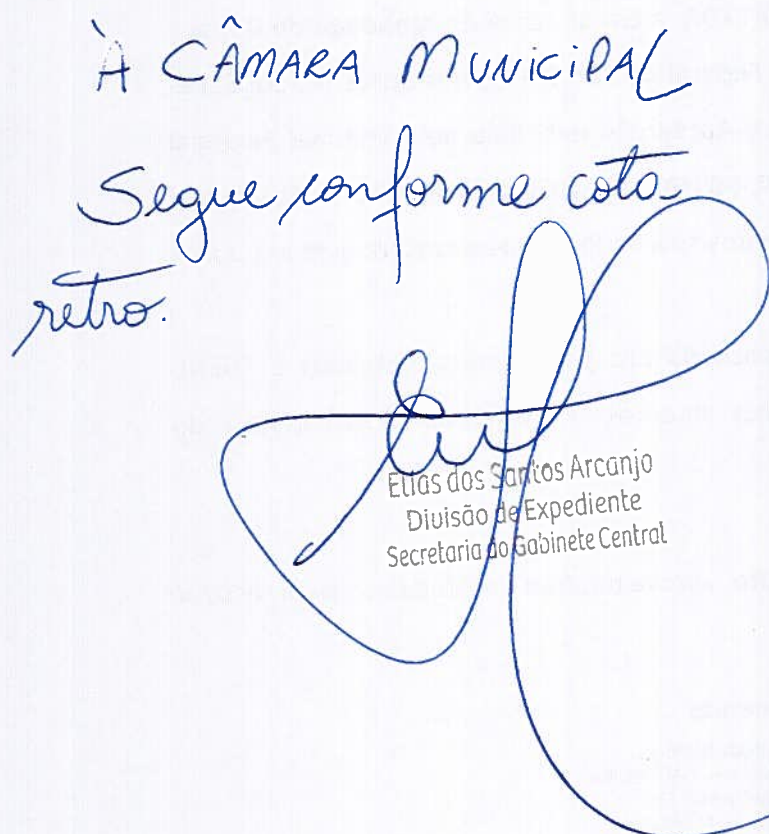 À CÂMARA MUNICIPAL
Segue conforme cota
retro.
Elias dos Santos Arcanjo
Divisão de Expediente
Secretaria do Gabinete Central